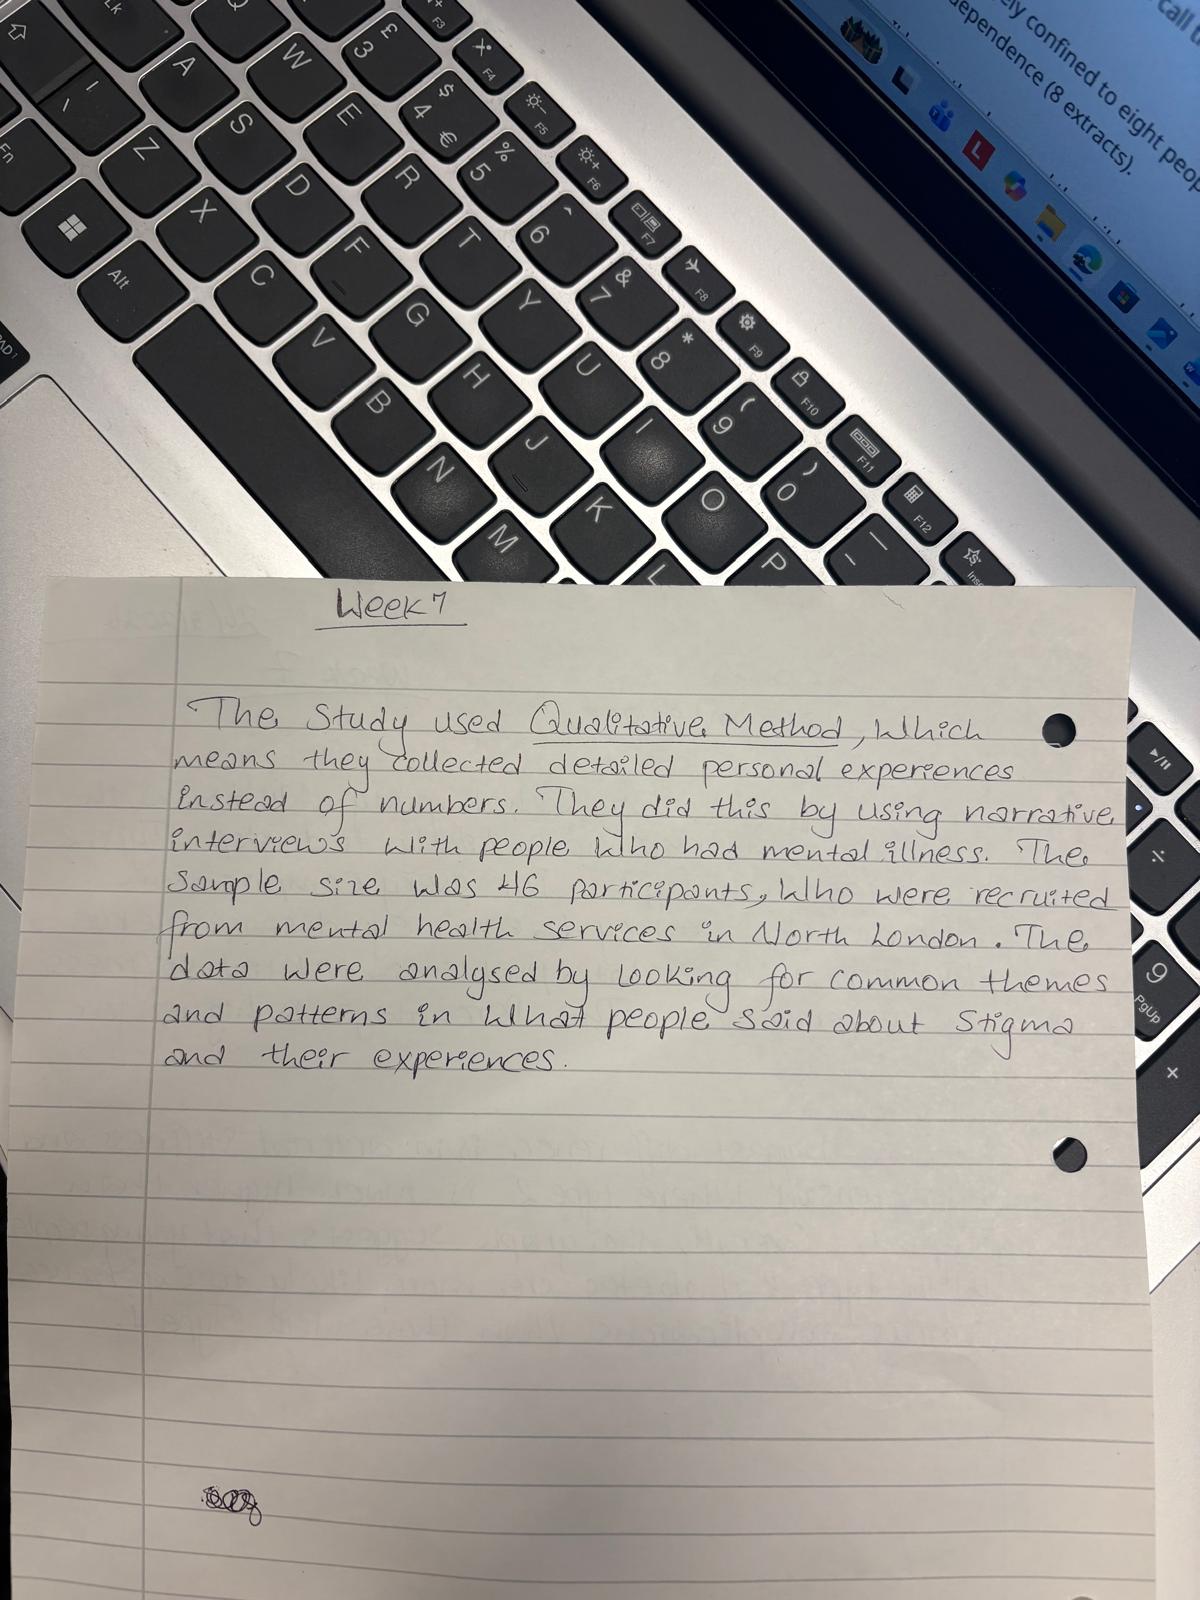 call t
ely confined to eight peop
dependence (8 extracts).
Lk
Q
W
3 £
F3
F4
A
S
E
4 $ €
5 %
F5
F6
Fn
Z
X
D
R
6 ^
F7
Alt
C
F
T
7 &
F8
V
G
Y
8 *
F9
B
H
U
9 (
F10
N
J
I
0 )
F11
M
K
O
F12
L
P
Week 7
The Study used Qualitative Method, Which
means they collected detailed personal experiences
instead of numbers. They did this by using narrative
interviews with people who had mental illness. The
sample size was 46 participants, who were recruited
from mental health services in North London. The
data were analysed by looking for common themes
and patterns in what people said about Stigma
and their experiences.
÷
9
PgUp
+